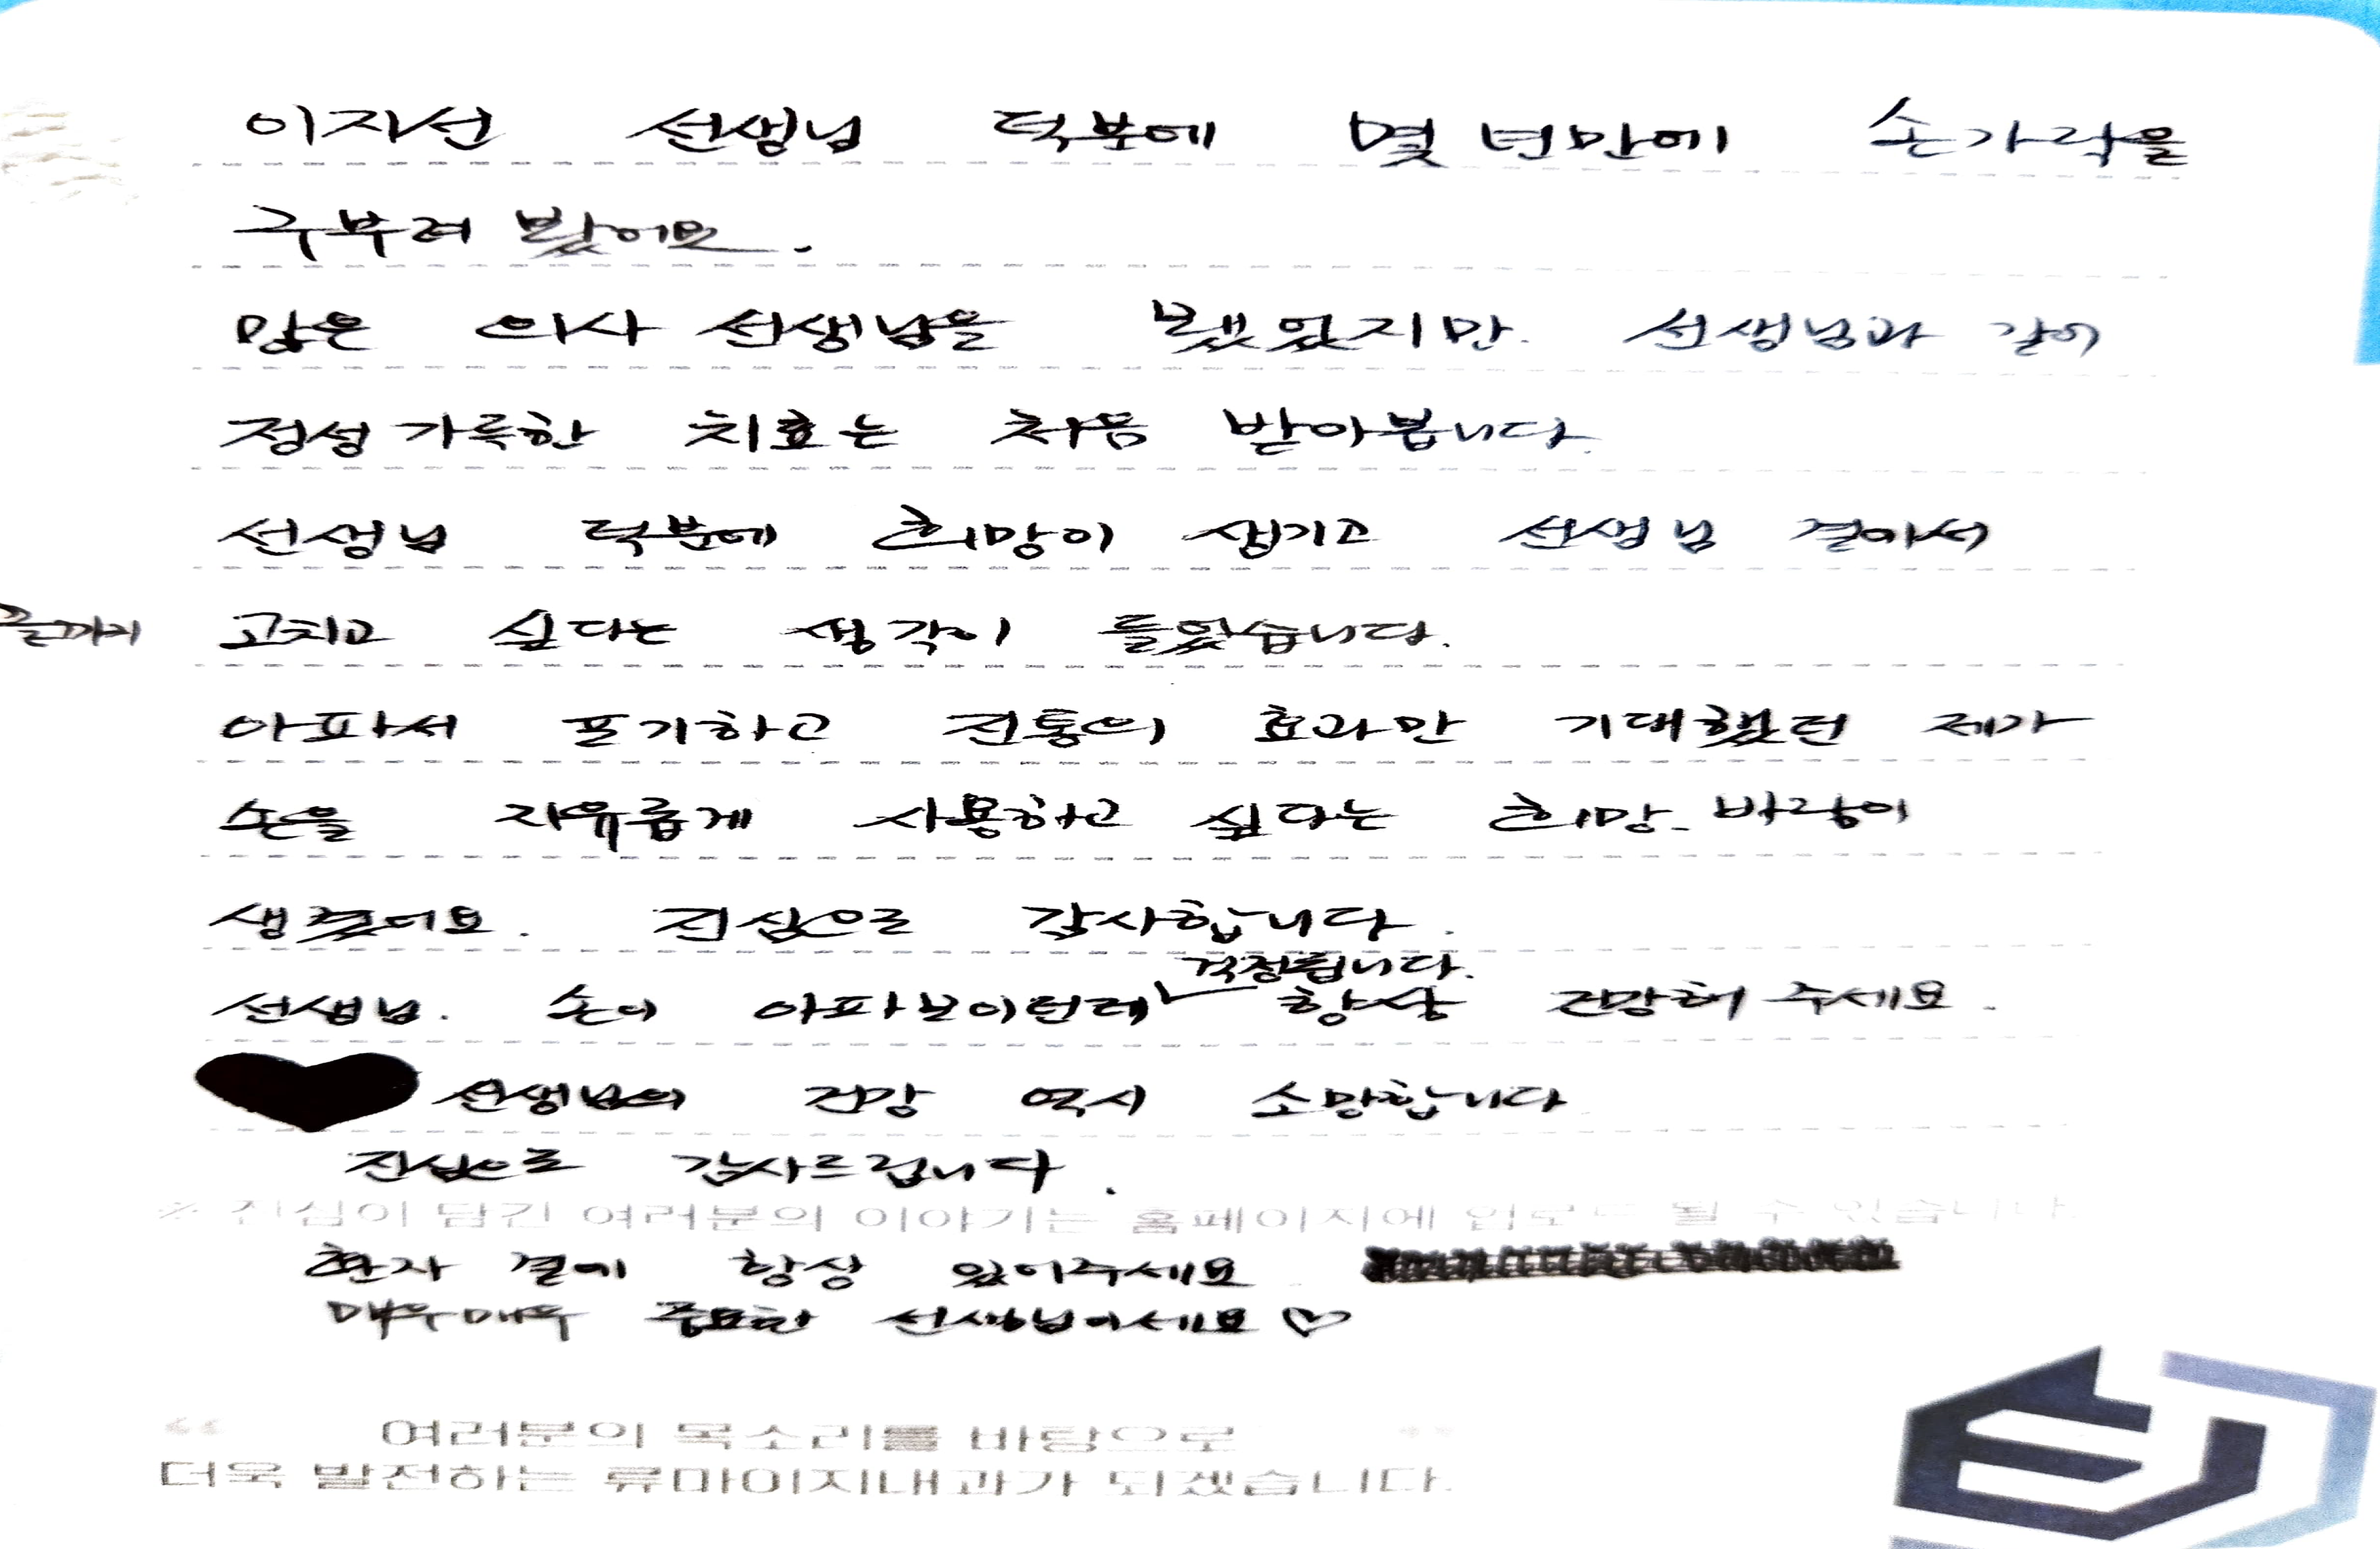 이지선 선생님 덕분에 몇 년만에 손가락을
구부려 봤어요.
많은 의사 선생님을 뵀었지만. 선생님과 같이
정성 가득한 치료는 처음 받아봅니다.
선생님 덕분에 희망이 생기고 선생님 곁아서
끝까지 고치고 싶다는 생각이 들었습니다.
아파서 포기하고 진통의 효과만 기대했던 제가
손을 자유롭게 사용하고 싶다는 희망. 바람이
생겼어요. 진심으로 감사합니다.
걱정됩니다.
선생님. 손이 아파보이던데 항상 건강해 주세요.
선생님의 건강 역시 소망합니다
진심으로 감사드립니다.
※ 진심이 담긴 여러분의 이야기는 홈페이지에 업로드 될 수 있습니다.
환자 곁에 항상 있어주세요
매우매우 중요한 선생님이세요 ♡
“ 여러분의 목소리를 바탕으로 ”
더욱 발전하는 류마이지내과가 되겠습니다.